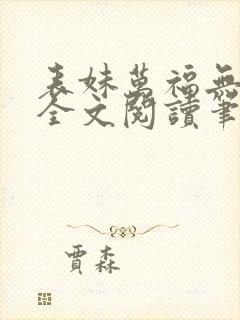 表妹萬福無
全文閱讀筆
賈森